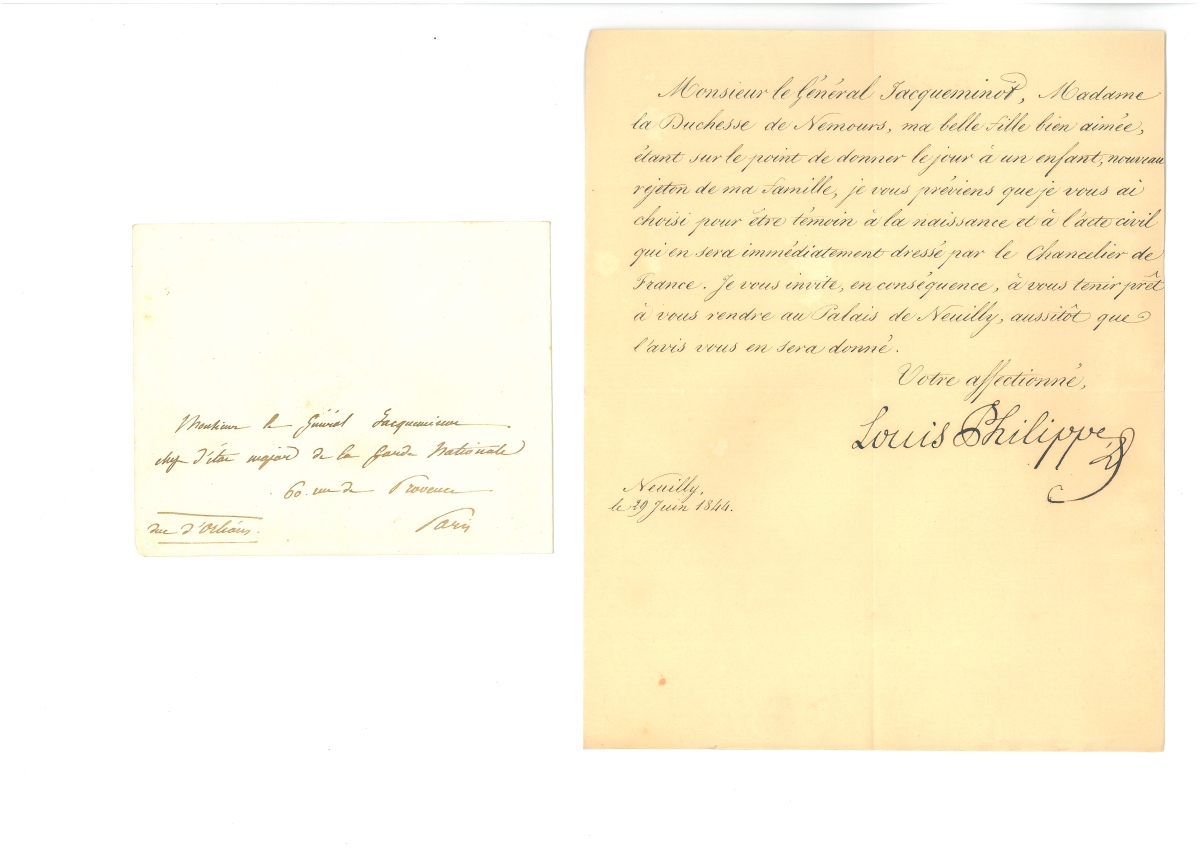 Monsieur le Général Jacqueminot
chef d'état major de la Garde Nationale
60. rue de Provence
Paris
duc d'Orléans.
Monsieur le Général Jacqueminot, Madame
la Duchesse de Nemours, ma belle fille bien aimée,
étant sur le point de donner le jour à un enfant, nouveau
rejeton de ma famille, je vous préviens que je vous ai
choisi pour être témoin à la naissance et à l'acte civil
qui en sera immédiatement dressé par le Chancelier de
France. Je vous invite, en conséquence, à vous tenir prêt
à vous rendre au Palais de Neuilly, aussitôt que
l'avis vous en sera donné.
Votre affectionné,
Louis Philippe
Neuilly,
le 29 Juin 1844.